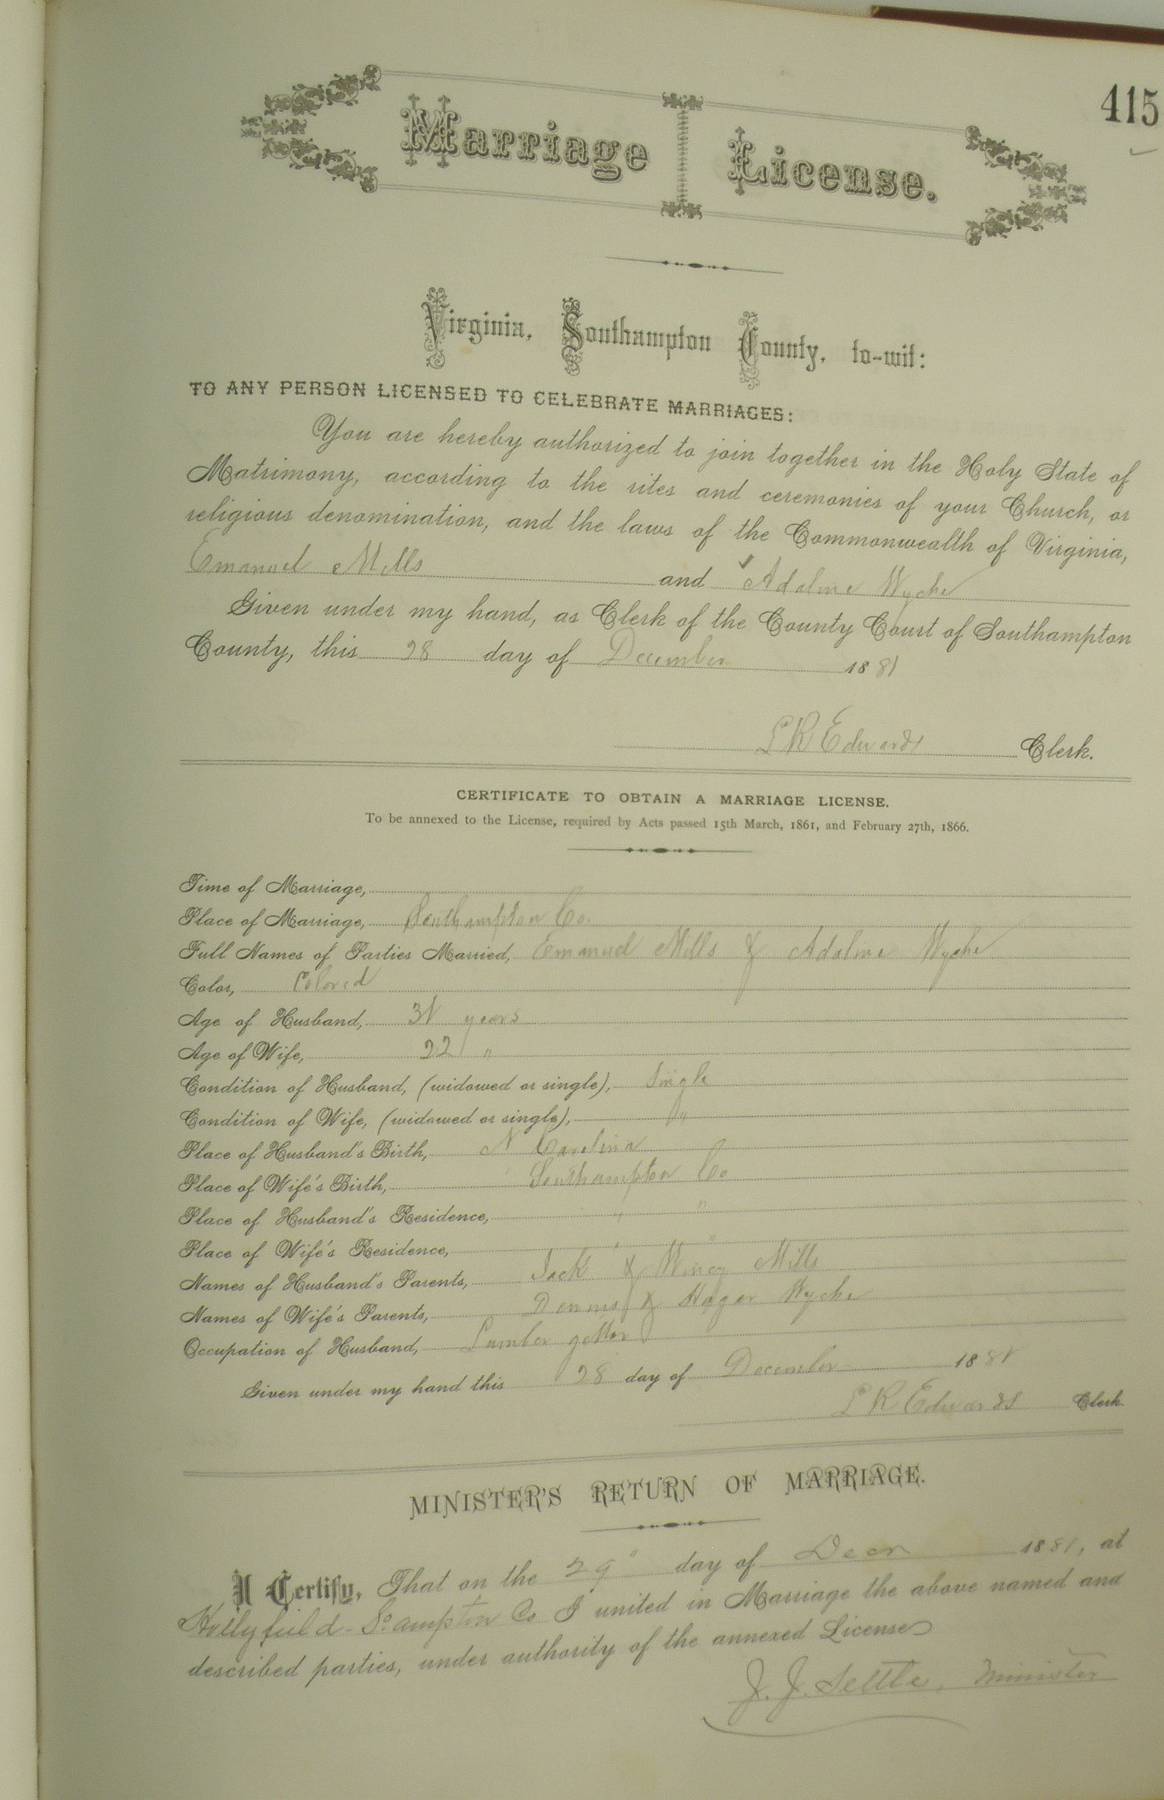 415
Marriage License.
Virginia, Southampton County, to-wit:
TO ANY PERSON LICENSED TO CELEBRATE MARRIAGES:
You are hereby authorized to join together in the Holy State of
Matrimony, according to the rites and ceremonies of your Church, or
religious denomination, and the laws of the Commonwealth of Virginia,
Emanuel Mills and Adaline Wyche
Given under my hand, as Clerk of the County Court of Southampton
County, this 28 day of December 1881
L R Edwards Clerk.
CERTIFICATE TO OBTAIN A MARRIAGE LICENSE.
To be annexed to the License, required by Acts passed 15th March, 1861, and February 27th, 1866.
Time of Marriage,
Place of Marriage, Southampton Co.
Full Names of Parties Married, Emanuel Mills & Adaline Wyche
Color, Colored
Age of Husband, years
Age of Wife, 22 "
Condition of Husband, (widowed or single), Single
Condition of Wife, (widowed or single), "
Place of Husband's Birth, N Carolina
Place of Wife's Birth, Southampton Co
Place of Husband's Residence, " "
Place of Wife's Residence, " "
Names of Husband's Parents, Jack & Mills
Names of Wife's Parents, Dennis & Hagar Wyche
Occupation of Husband, Lumber getter
Given under my hand this 28 day of December 1881
L R Edwards Clerk.
MINISTER'S RETURN OF MARRIAGE.
I Certify, That on the 29° day of Decr 1881, at
Hollyfield - So ampton Co I united in Marriage the above named and
described parties, under authority of the annexed License
J. J. Settle, Minister